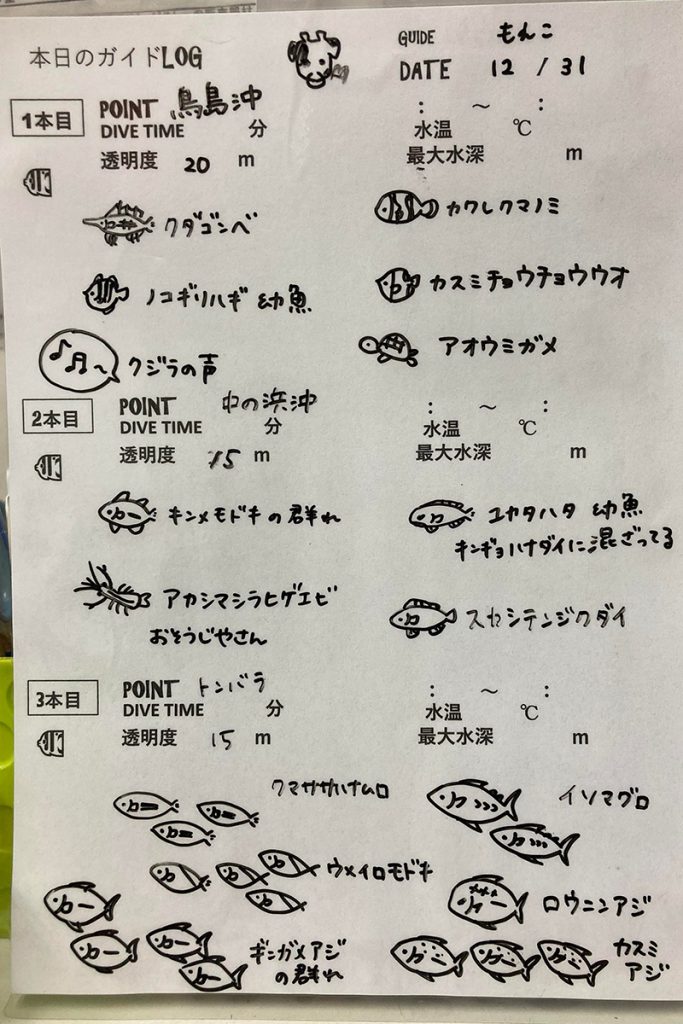 本日のガイドLOG
GUIDE もんこ
DATE 12 / 31
1本目 POINT 鳥島沖 : ～ :
DIVE TIME 分 水温 ℃
透明度 20 m 最大水深 m
クダゴンベ カクレクマノミ
ノコギリハギ 幼魚 カスミチョウチョウウオ
クジラの声 アオウミガメ
2本目 POINT 中の浜沖 : ～ :
DIVE TIME 分 水温 ℃
透明度 15 m 最大水深 m
キンメモドキの群れ ユカタハタ 幼魚
キンギョハナダイに混ざってる
アカシマシラヒゲエビ スカシテンジクダイ
おそうじやさん
3本目 POINT トンバラ : ～ :
DIVE TIME 分 水温 ℃
透明度 15 m 最大水深 m
クマササハナムロ イソマグロ
ウメイロモドキ ロウニンアジ
ギンガメアジ カスミ
の群れ アジ